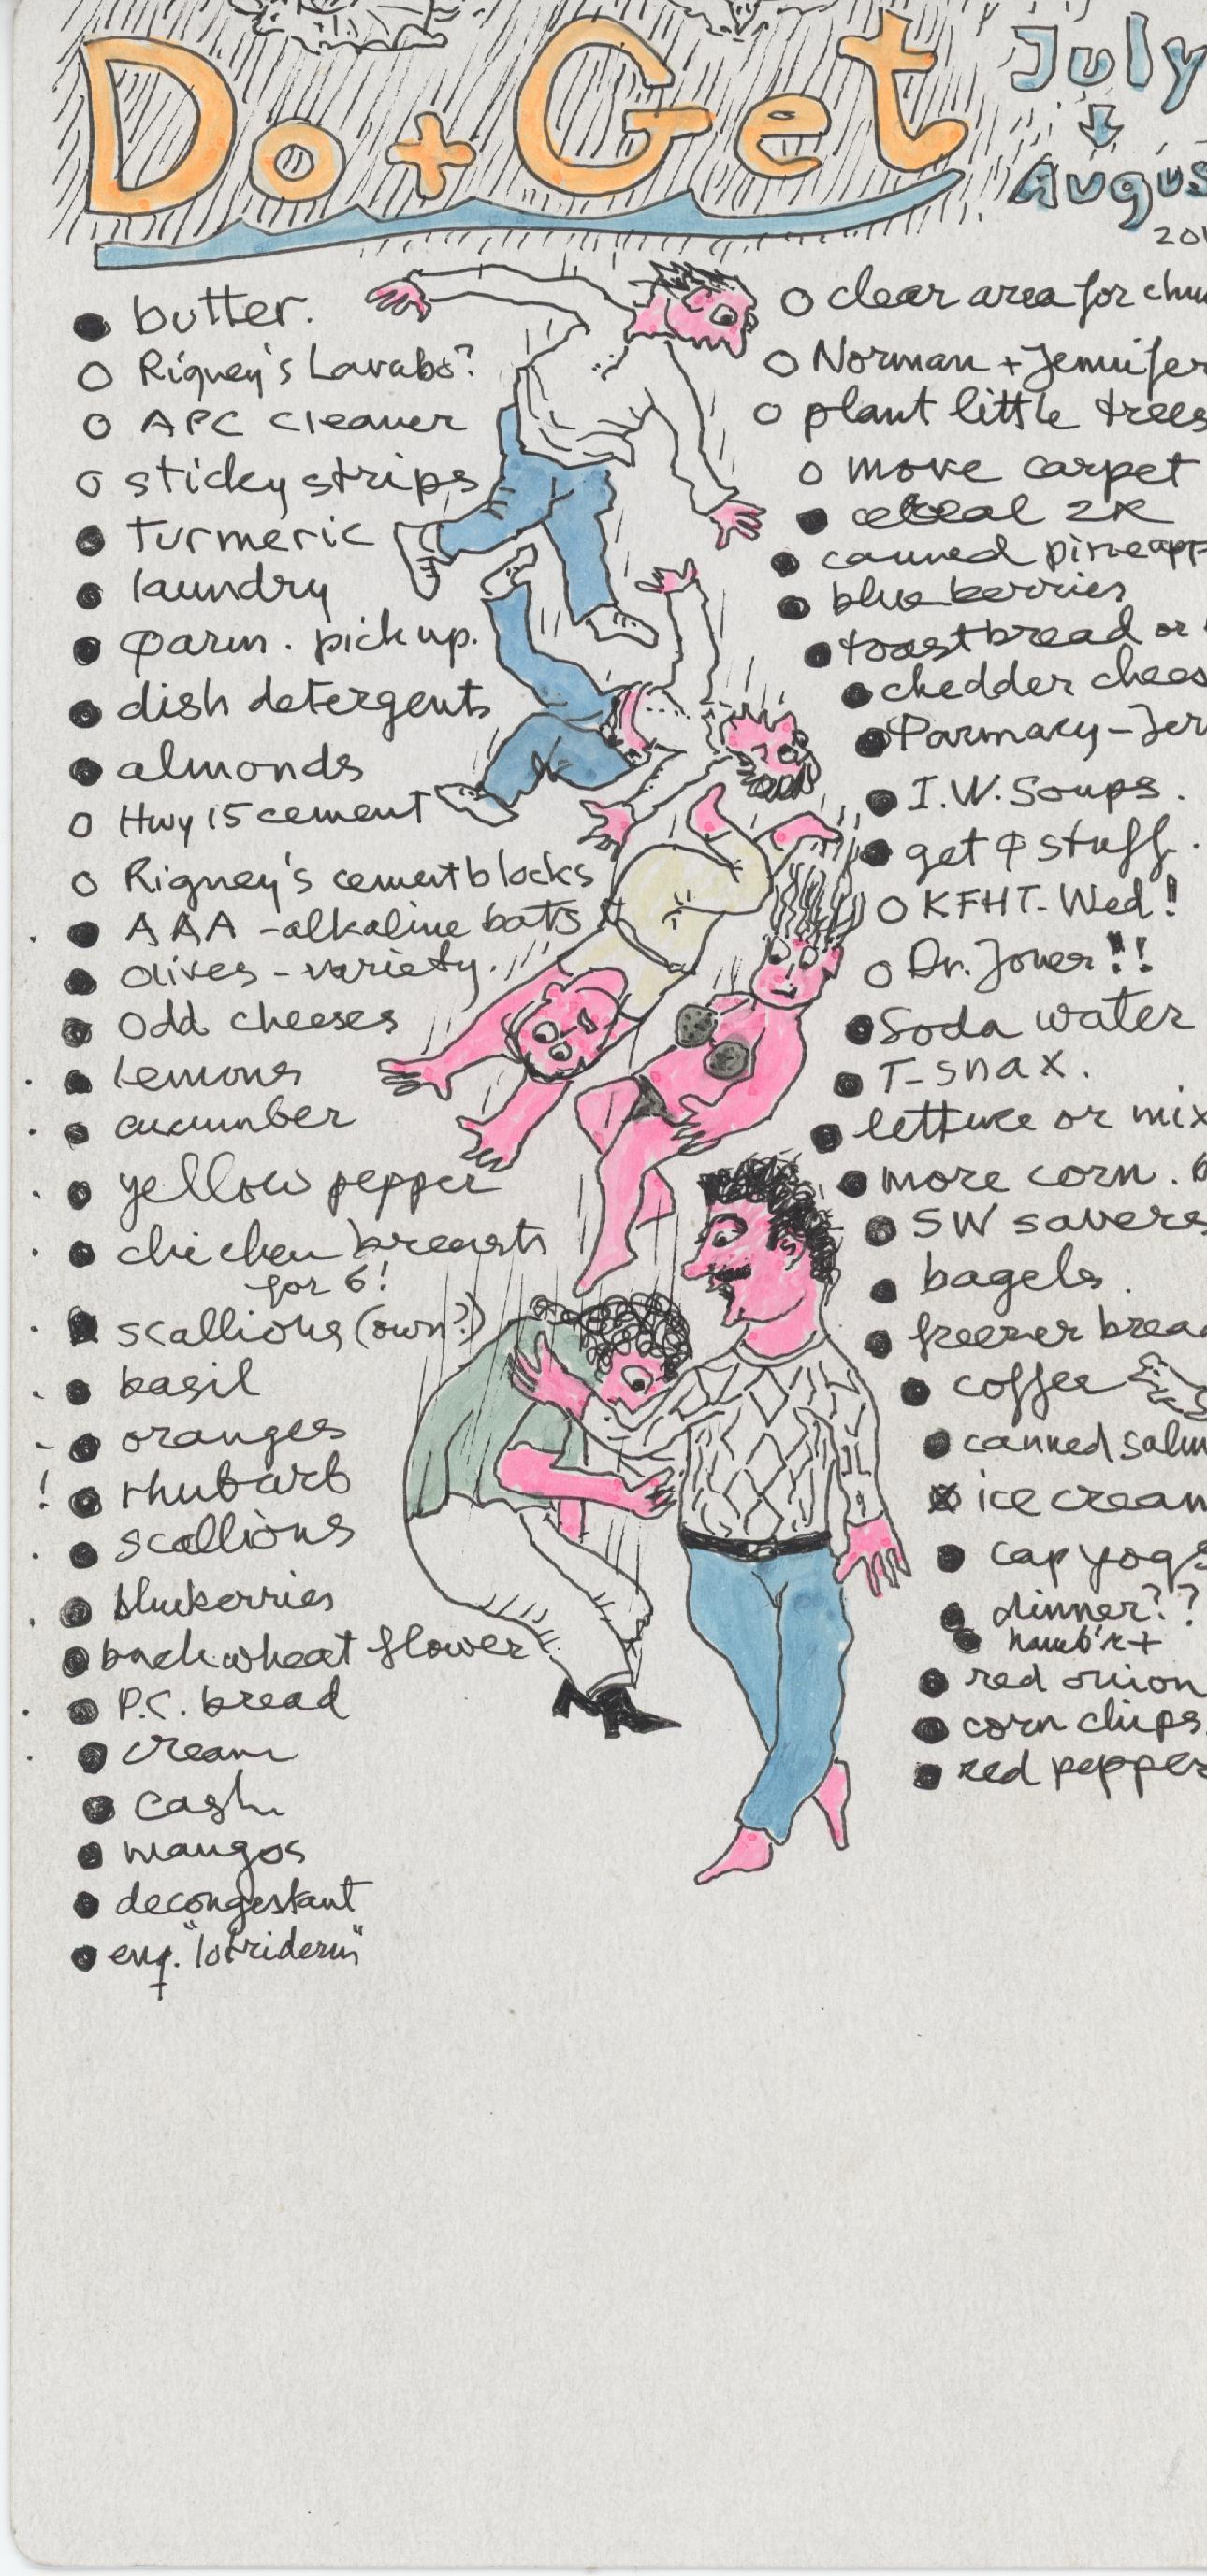 Do + Get
July
Augus
201
butter.
Rigney's Lavabo?
APC cleaner
sticky strips
turmeric
laundry
φarm. pick up.
dish detergent
almonds
Hwy 15 cement
Rigney's cement blocks
AAA - alkaline bats
olives - variety.
odd cheeses
lemons
cucumber
yellow pepper
chicken breasts
for 6!
scallions (own?)
basil
oranges
! rhubarb
scallions
blueberries
buckwheat flower
P.C. bread
cream
cash
mangos
decongestant
enq. "lotriderm"
clear area for
Norman + Jennifer
plant little trees
move carpet
cereal 2X
canned pineapp
blueberries
toast bread or
chedder chees
Parmacy - Jer
I.W. Soups.
get φ stuff.
KFHT - Wed!
Dr. Joner!!
Soda water
T-snax.
lettuce or mix
more corn. 6
SW savers
bagels.
freezer brea
coffee
canned salm
ice cream
cap yogs
dinner??
hamb'r +
red onion
corn chips
red pepper